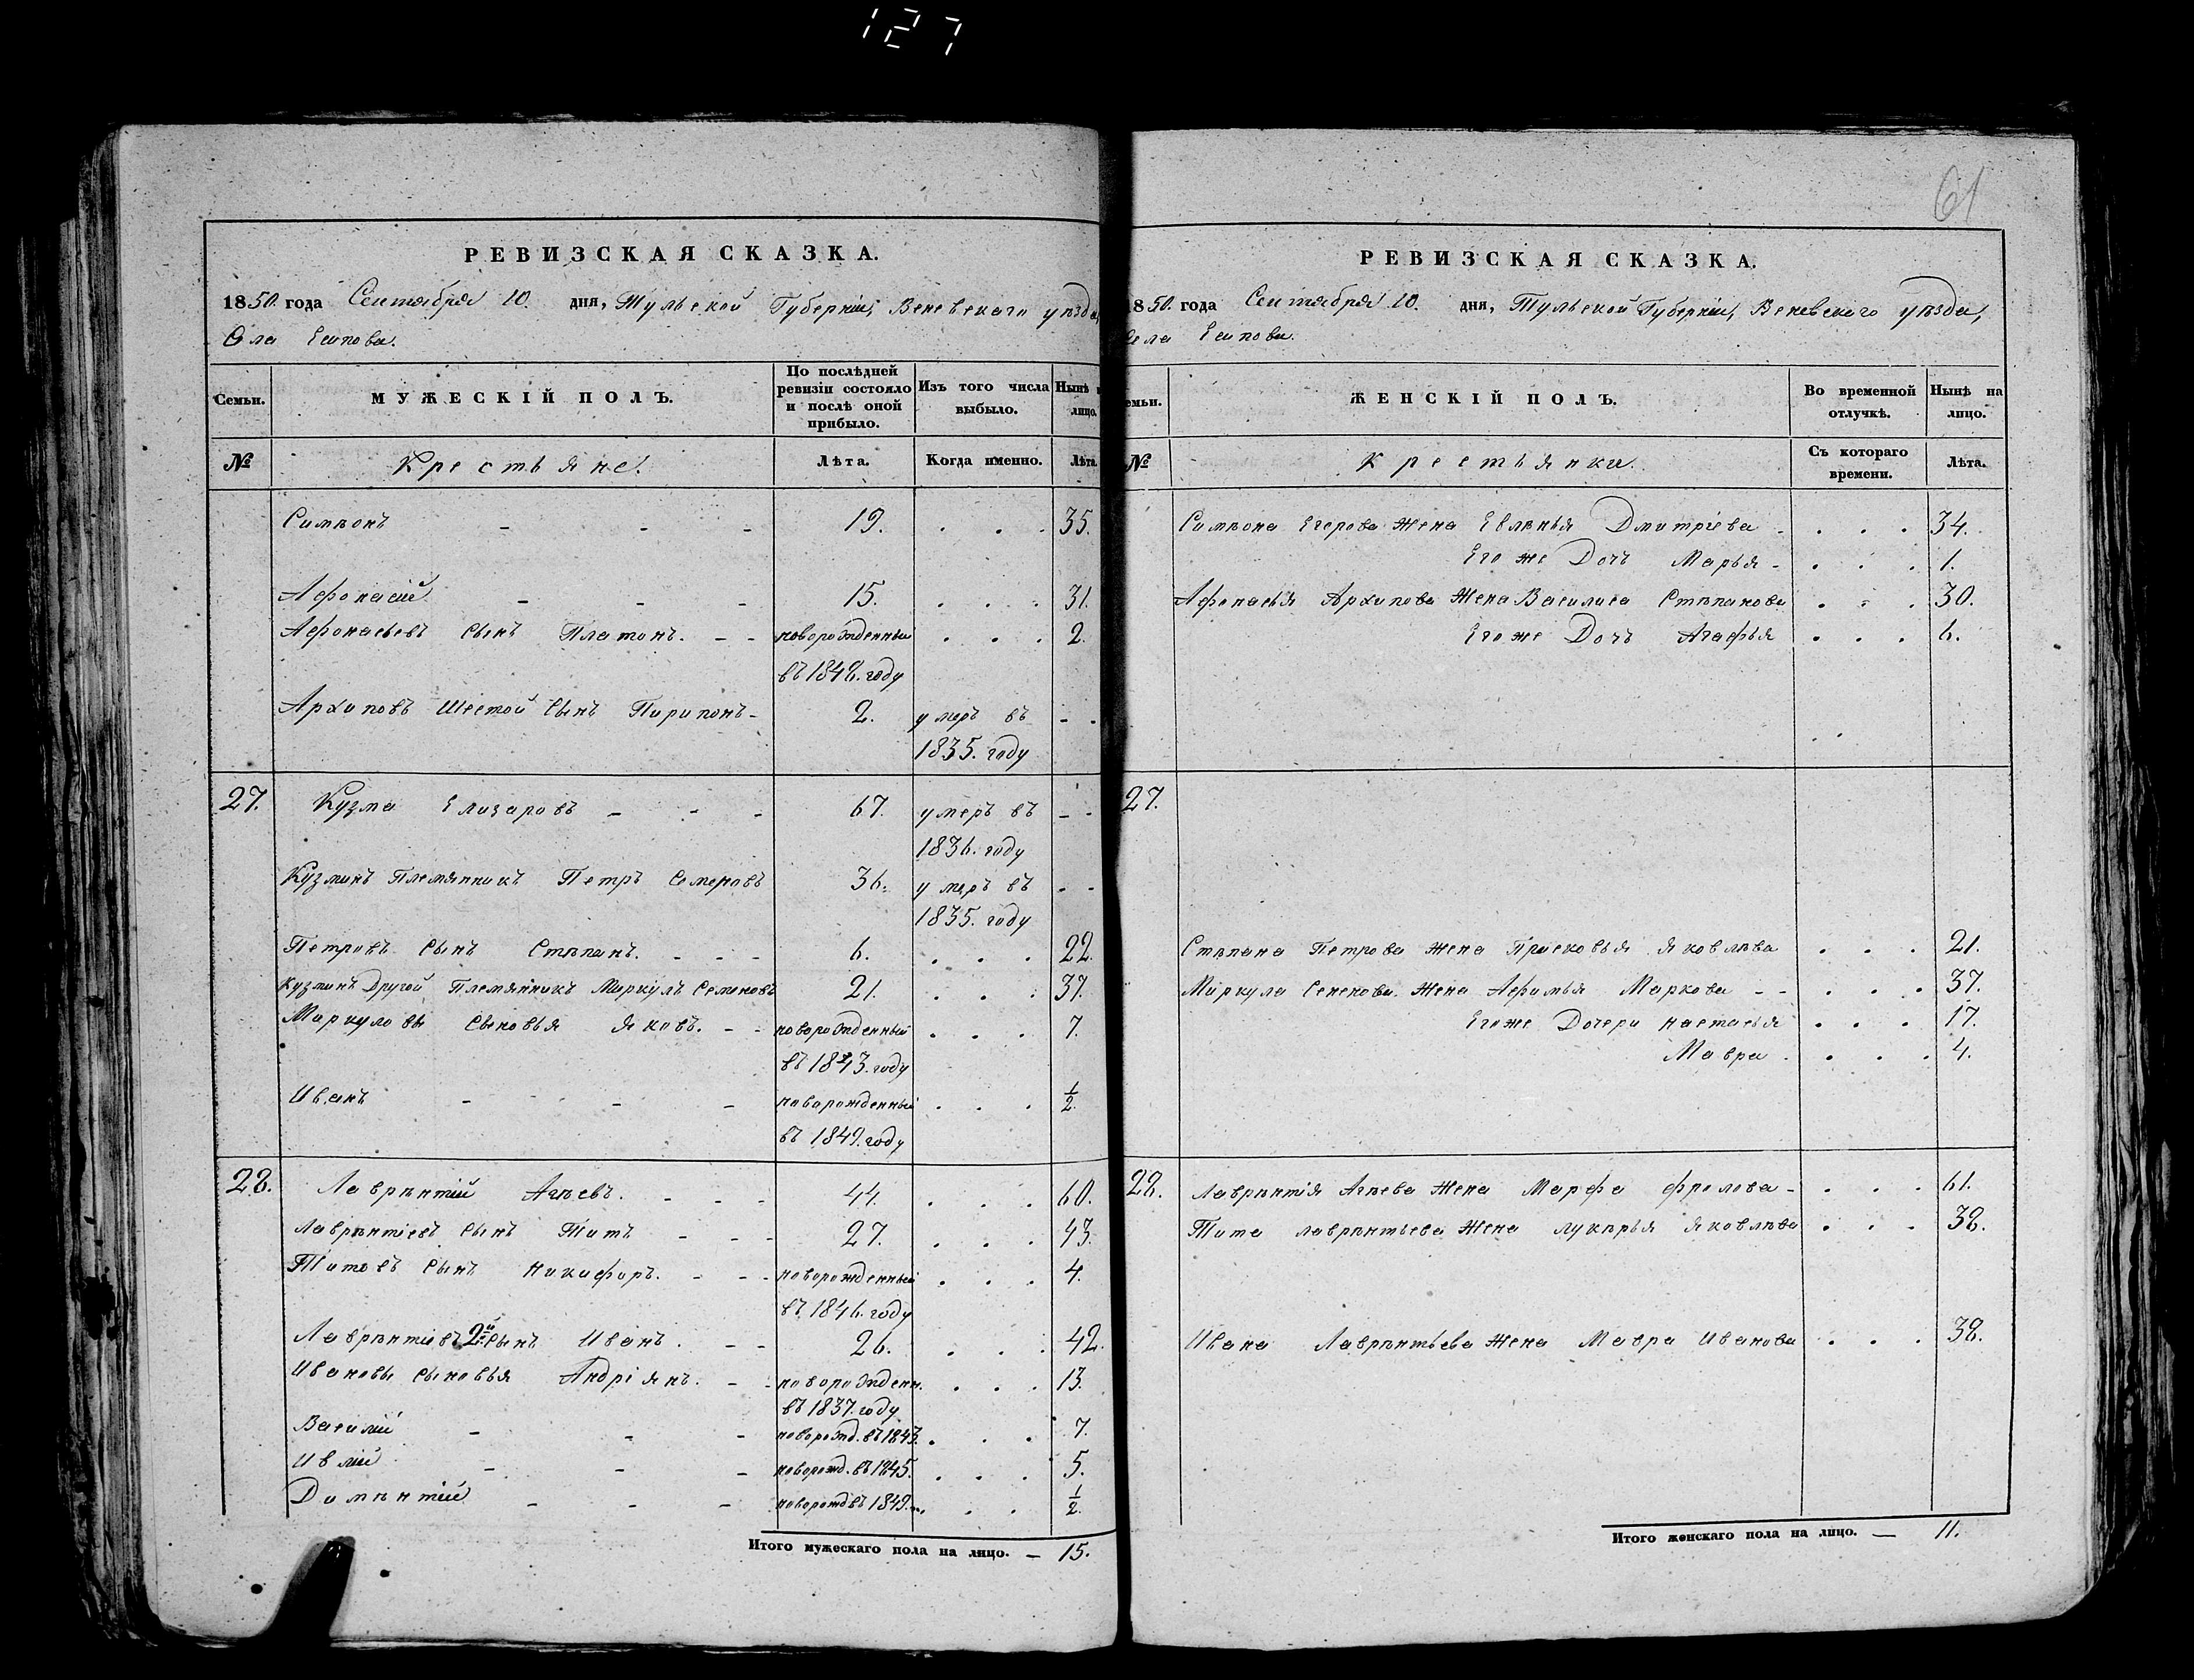 127
61
РЕВИЗСКАЯ СКАЗКА.
1850. года Сентября 10. дня, Тульской Губерніи, Веневскаго уѣзда,
Села Есипова.
Семьи. МУЖЕСКІЙ ПОЛЪ. По послѣдней ревизіи состояло и послѣ оной прибыло. Изъ того числа выбыло. Нынѣ на лицо.
№ Крестьяне. Лѣта. Когда именно. Лѣта.
Симѣонъ - - - 19. . . . 35.
Афонасій - - - 15. . . . 31.
Афонасьевъ сынъ Платонъ. - - новорожденный . . . 2.
въ 1848. году
Архиповъ Шестой сынъ Пиритонъ - 2. умеръ въ - -
1835. году
27. Кузма Елизаровъ - - - 67. умеръ въ - -
1836. году
Кузминъ Племянникъ Петръ Семеновъ 36. умеръ въ - -
1835. году
Петровъ сынъ Стѣпанъ. - - - 6. . . . 22.
Кузминъ Другой Племянникъ Меркулъ Семеновъ 21. . . . 37.
Меркуловы сыновья Яковъ. - - новорожденный . . . 7.
въ 1843. году
Иванъ - - - новорожденный . . . 1/2.
въ 1849. году
28. Лаврѣнтій Агѣевъ. - - - 44. . . . 60.
Лаврѣнтіевъ сынъ Титъ - - - 27. . . . 43.
Титовъ сынъ Никифоръ. - - - новорожденный . . . 4.
въ 1846. году
Лаврѣнтіевъ 2й сынъ Иванъ. - - 26. . . . 42.
Ивановы сыновья Андріянъ. - - новорожденн. . . . 13.
въ 1837. году
Василій - - - новорожд. въ 1843. . . . 7.
Ивлій - - - новорожд. въ 1845. . . . 5.
Димѣнтій - - - новорожд въ 1849. . . . 1/2.
Итого мужескаго пола на лицо. — 15.
РЕВИЗСКАЯ СКАЗКА.
1850. года Сентября 10. дня, Тульской Губерніи, Веневскаго уѣзда,
Села Есипова.
Семьи. ЖЕНСКІЙ ПОЛЪ. Во временной отлучкѣ. Нынѣ на лицо.
№ Крестьянки. Съ котораго времени. Лѣта.
Симѣона Егорова жена Евлѣнья Дмитріева - . . . 34.
Его же Дочь Марья - . . . 1.
Афонасья Архипова жена Василиса Стѣпанова . . . 30.
Его же Дочь Агафья . . . 6.
27.
Стѣпана Петрова жена Прасковья Яковлѣва . . . 21.
Меркула Семенова жена Афимья Маркова - - . . . 37.
Его же Дочери Настасья . . . 17.
Мавра . . . . 4.
28. Лаврѣнтія Агѣева жена Марфа Фролова - . . . 61.
Тита Лаврѣнтьева жена Лукѣрья Яковлѣва . . . 38.
Ивана Лаврѣнтьева жена Мавра Иванова . . . 38.
Итого женскаго пола на лицо. — 11.